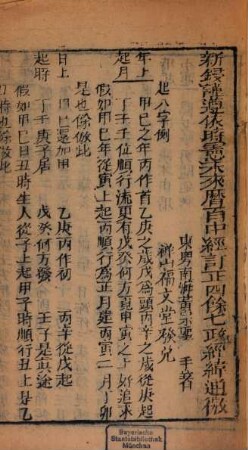 新鋟諸𨕖依時憲
曆百中經訂正四餘七政綜綜通微
東粵南海黃
手著
禪山福文堂發兌
起八字例
年上
起月
甲巳之年丙作首乙庚之歲戊為頭丙辛之歲從庚起
丁壬壬位順行流更有戊癸何方覓甲寅之上好追求
假如甲巳年從寅上起丙順行為正月建丙寅二月丁卯
是也餘倣此
日上
起時
甲巳還加甲
乙庚丙作初
丙辛從戊起
丁壬庚子居
戊癸何方發
壬子是眞途
假如甲巳日丑時生人從子上起甲子時順行丑上是乙
丑時也餘倣此
Bayerische
Staatsbibliothek
München